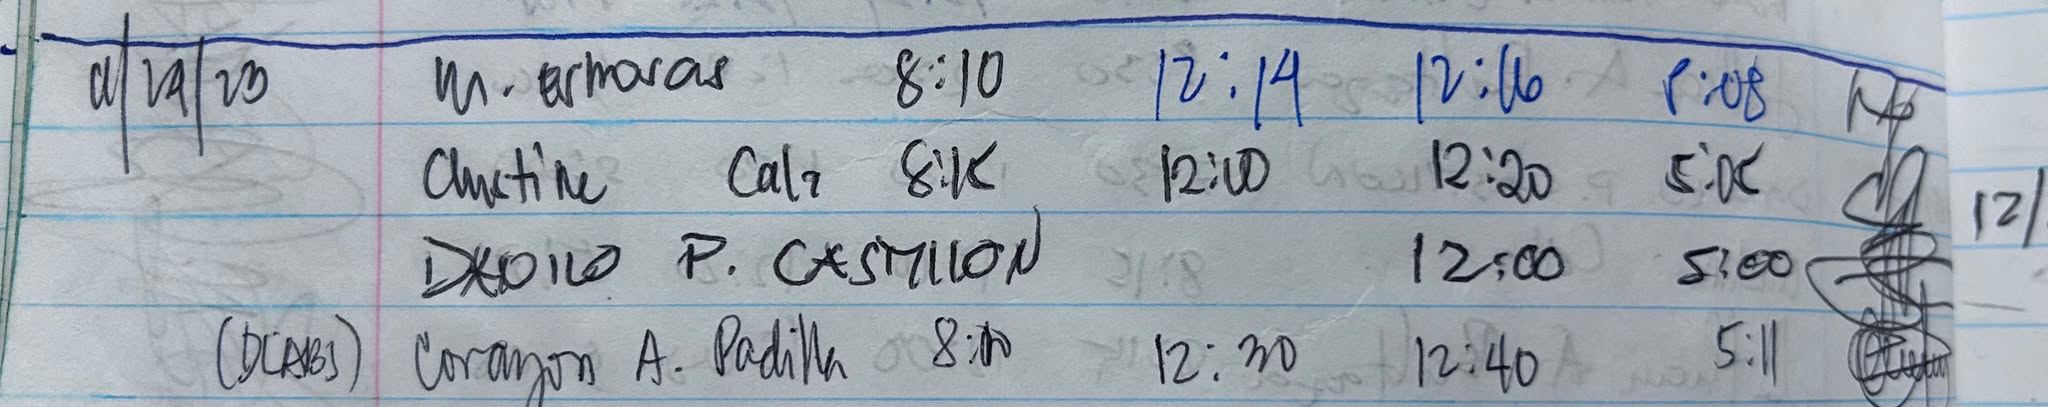 11/29/23 M. armoras 8:10 12:14 12:16 5:08
Christine 8:15 12:10 12:20 5:05
P. CASTILLON 12:00 5:00
(DCABS) Corazon A. Padilla 8:00 12:30 12:40 5:11
12/